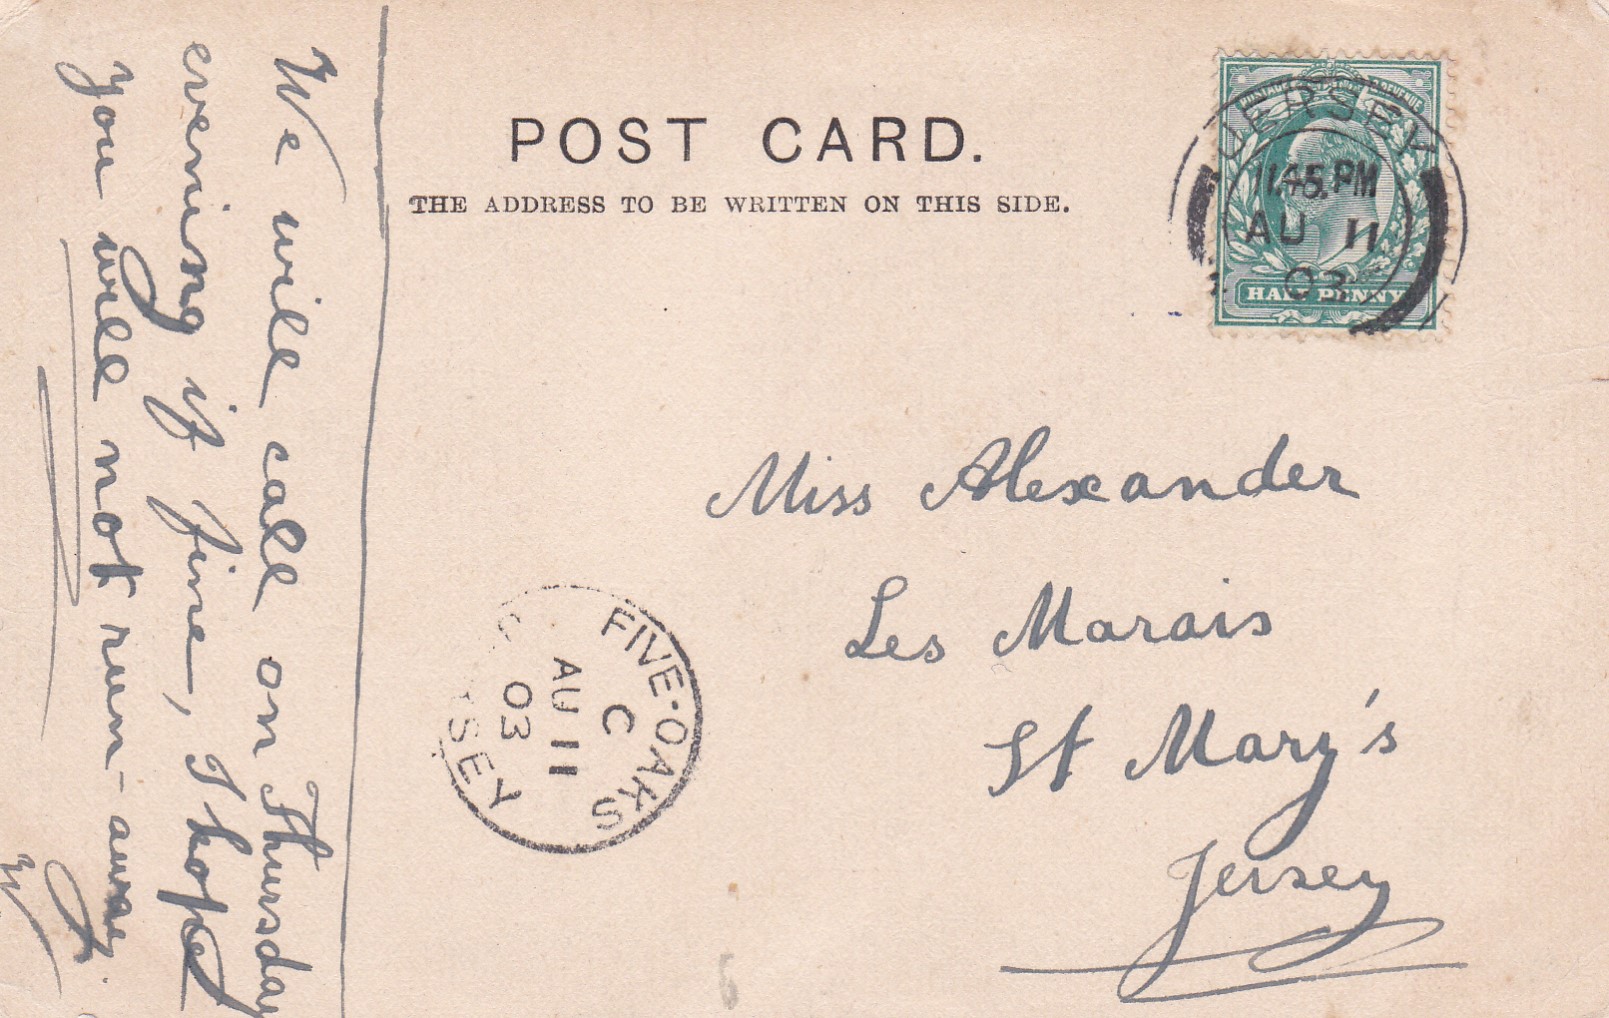 POST CARD.
THE ADDRESS TO BE WRITTEN ON THIS SIDE.
POSTAGE REVENUE
HALF PENNY
JERSEY
1.45.PM
AU 11
03
Miss Alexander
Les Marais
St Mary's
Jersey
FIVE-OAKS
C
AU 11
03
We will call on Thursday
evening if fine, I hope
you will not run-away.
W